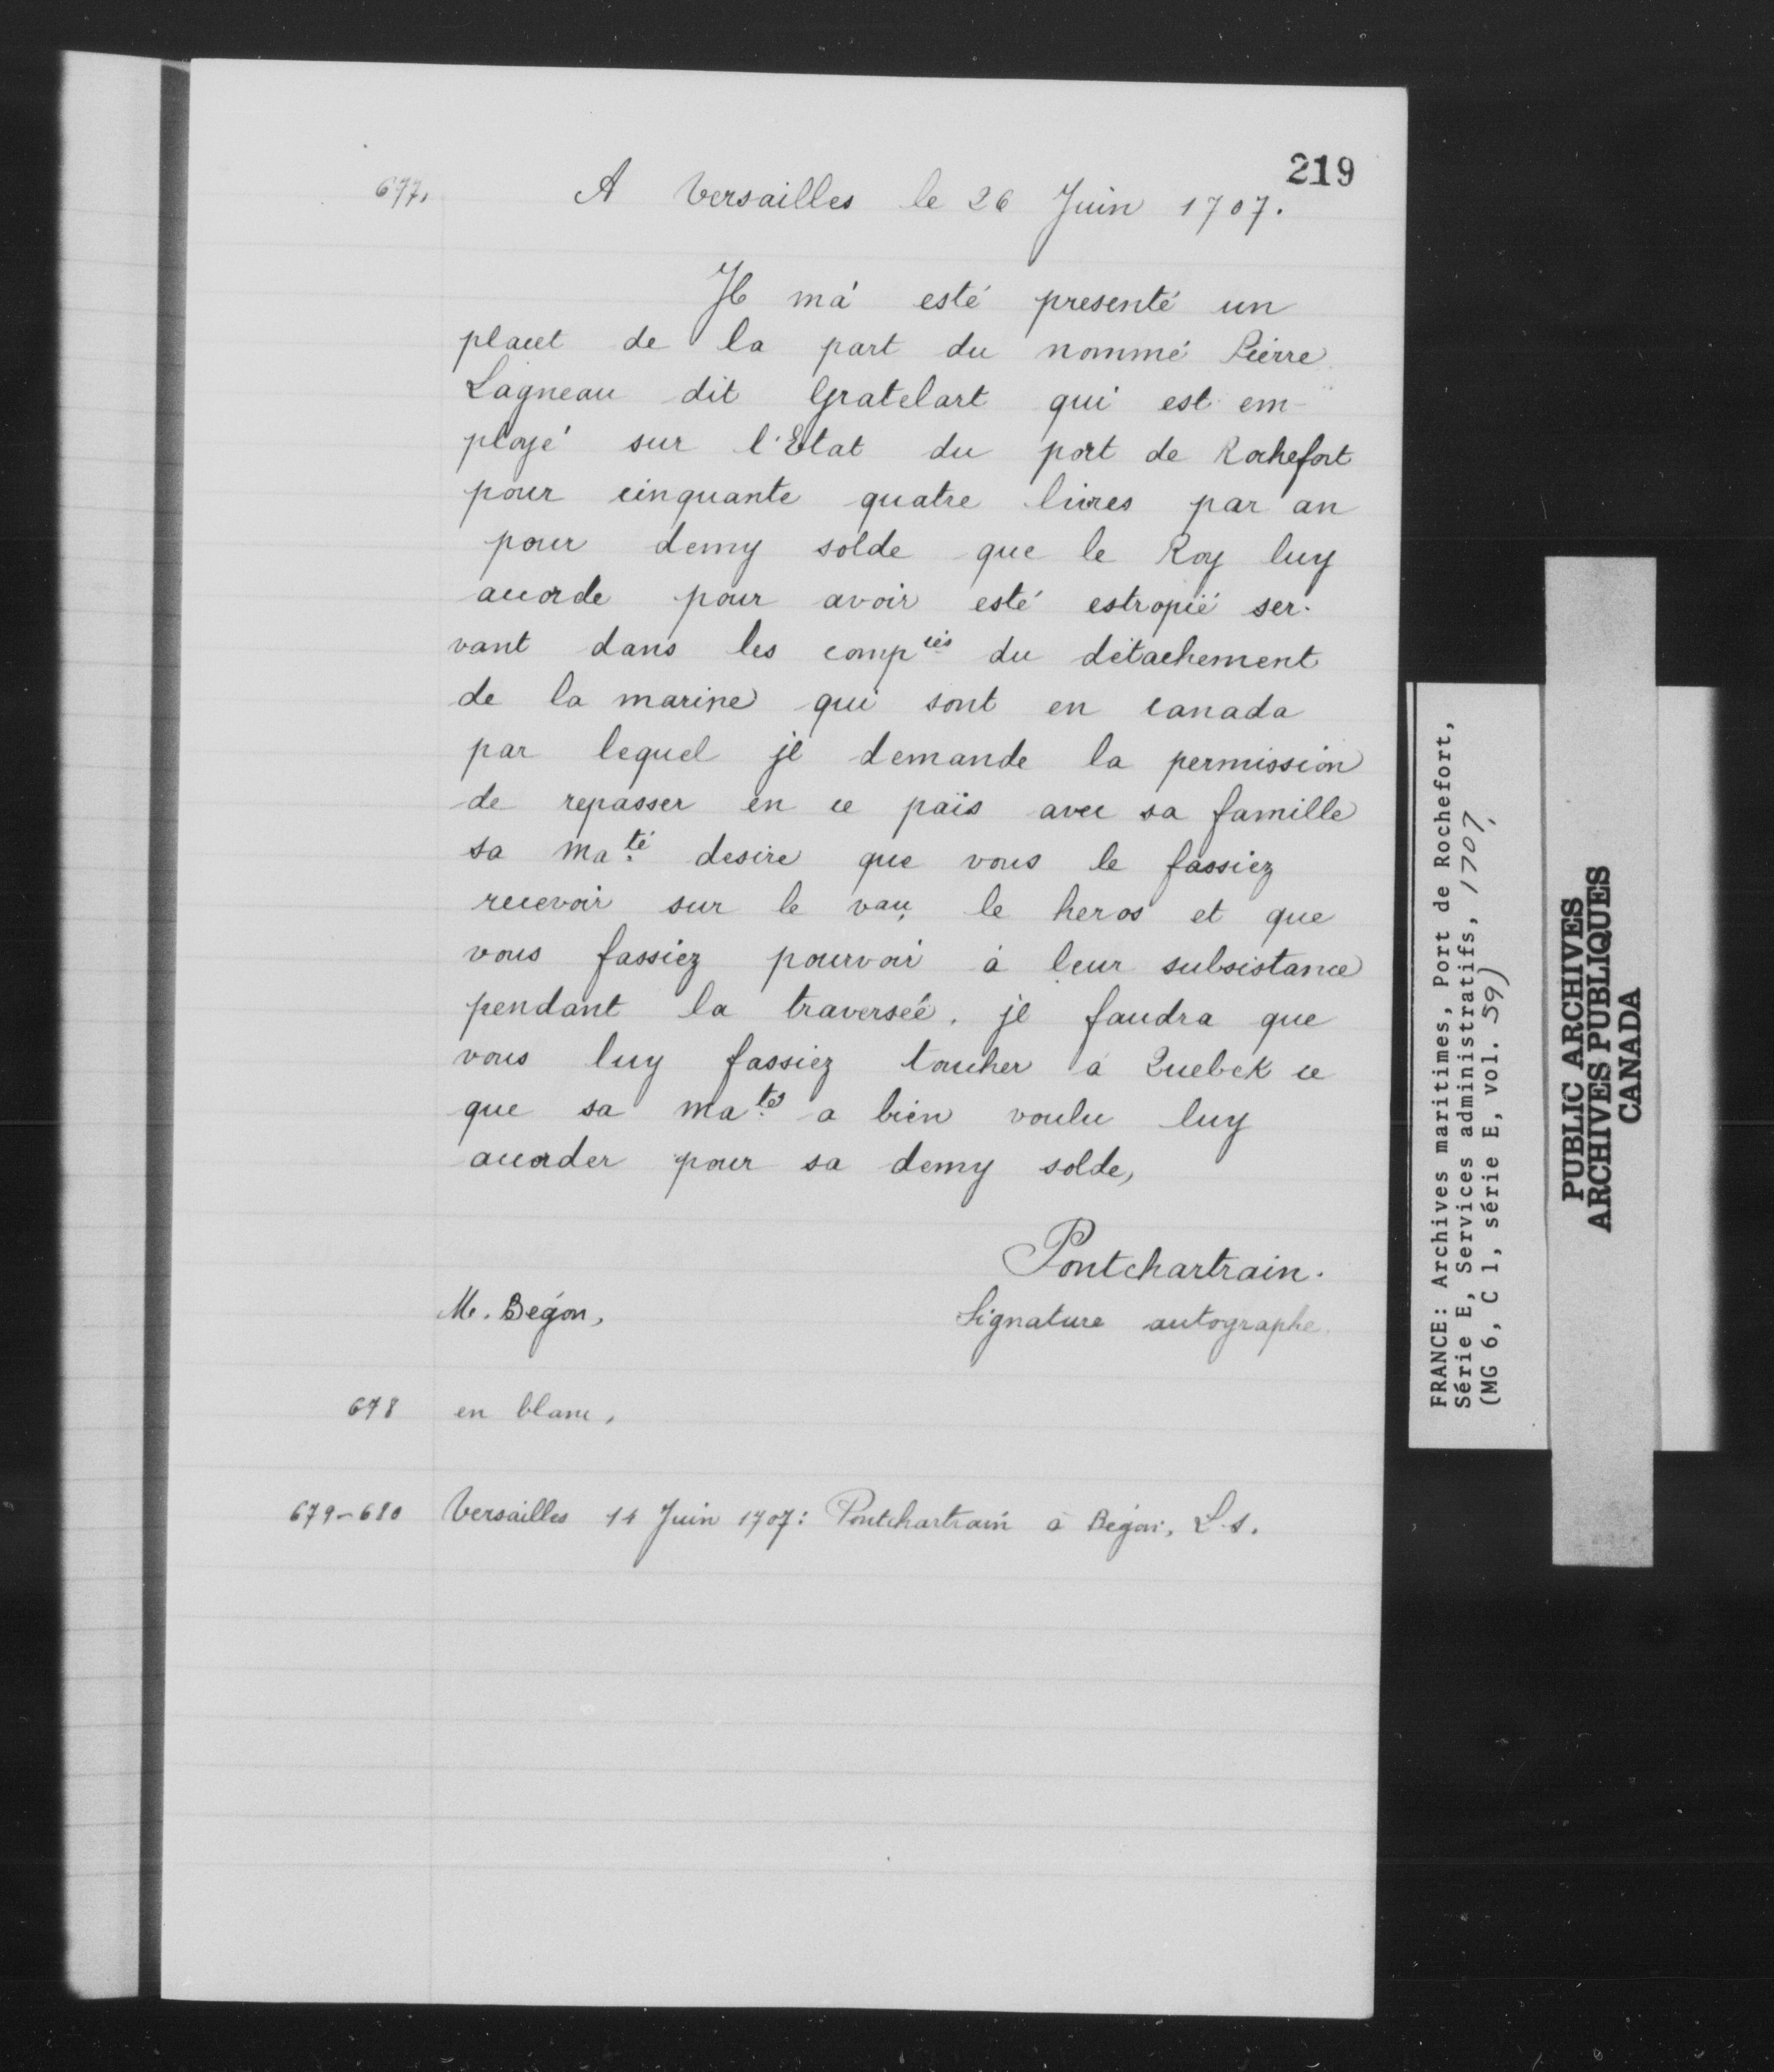 219
677.
A Versailles le 26 Juin 1707.
Il m'a esté presenté un
placet de la part du nommé Pierre
Lagneau dit Gratelart qui est em-
ployé sur l'Etat du port de Rochefort
pour cinquante quatre livres par an
pour demy solde que le Roy luy
accorde pour avoir esté estropié ser-
vant dans les compies du détachement
de la marine qui sont en canada
par lequel jl demande la permission
de repasser en ce païs avec sa famille
sa maté desire que vous le fassiez
recevoir sur le vau le heros et que
vous fassiez pourvoir à leur subsistance
pendant la traversée. jl faudra que
vous luy fassiez toucher à Quebek ce
que sa matés a bien voulu luy
accorder pour sa demy solde,
Pontchartrain.
M. Begon,
Signature autographe.
678 en blanc,
679-680 Versailles 14 Juin 1707: Pontchartrain à Bégon, L.s.
FRANCE: Archives maritimes, Port de Rochefort,
Série E, Services administratifs, 1707,
(MG 6, C 1, série E, vol. 59)
PUBLIC ARCHIVES
ARCHIVES PUBLIQUES
CANADA